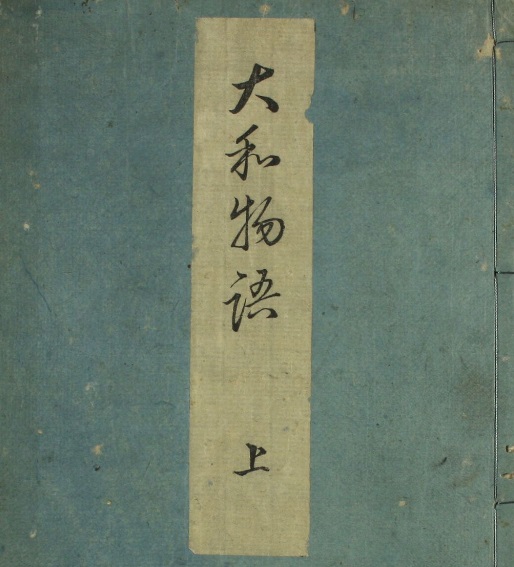 大和物語 上